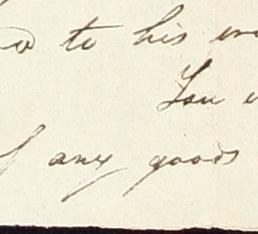 to his
You
any goods